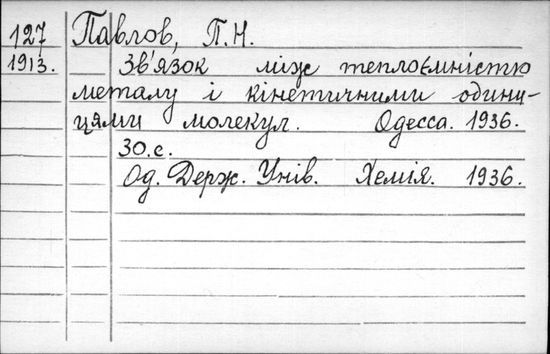 127 Павлов, П.Н.
1913. Зв'язок між теплоємністю
металу і кінетичними одини-
цями молекул. Одесса. 1936.
30.с.
Од. Держ. Унів. Хемія. 1936.